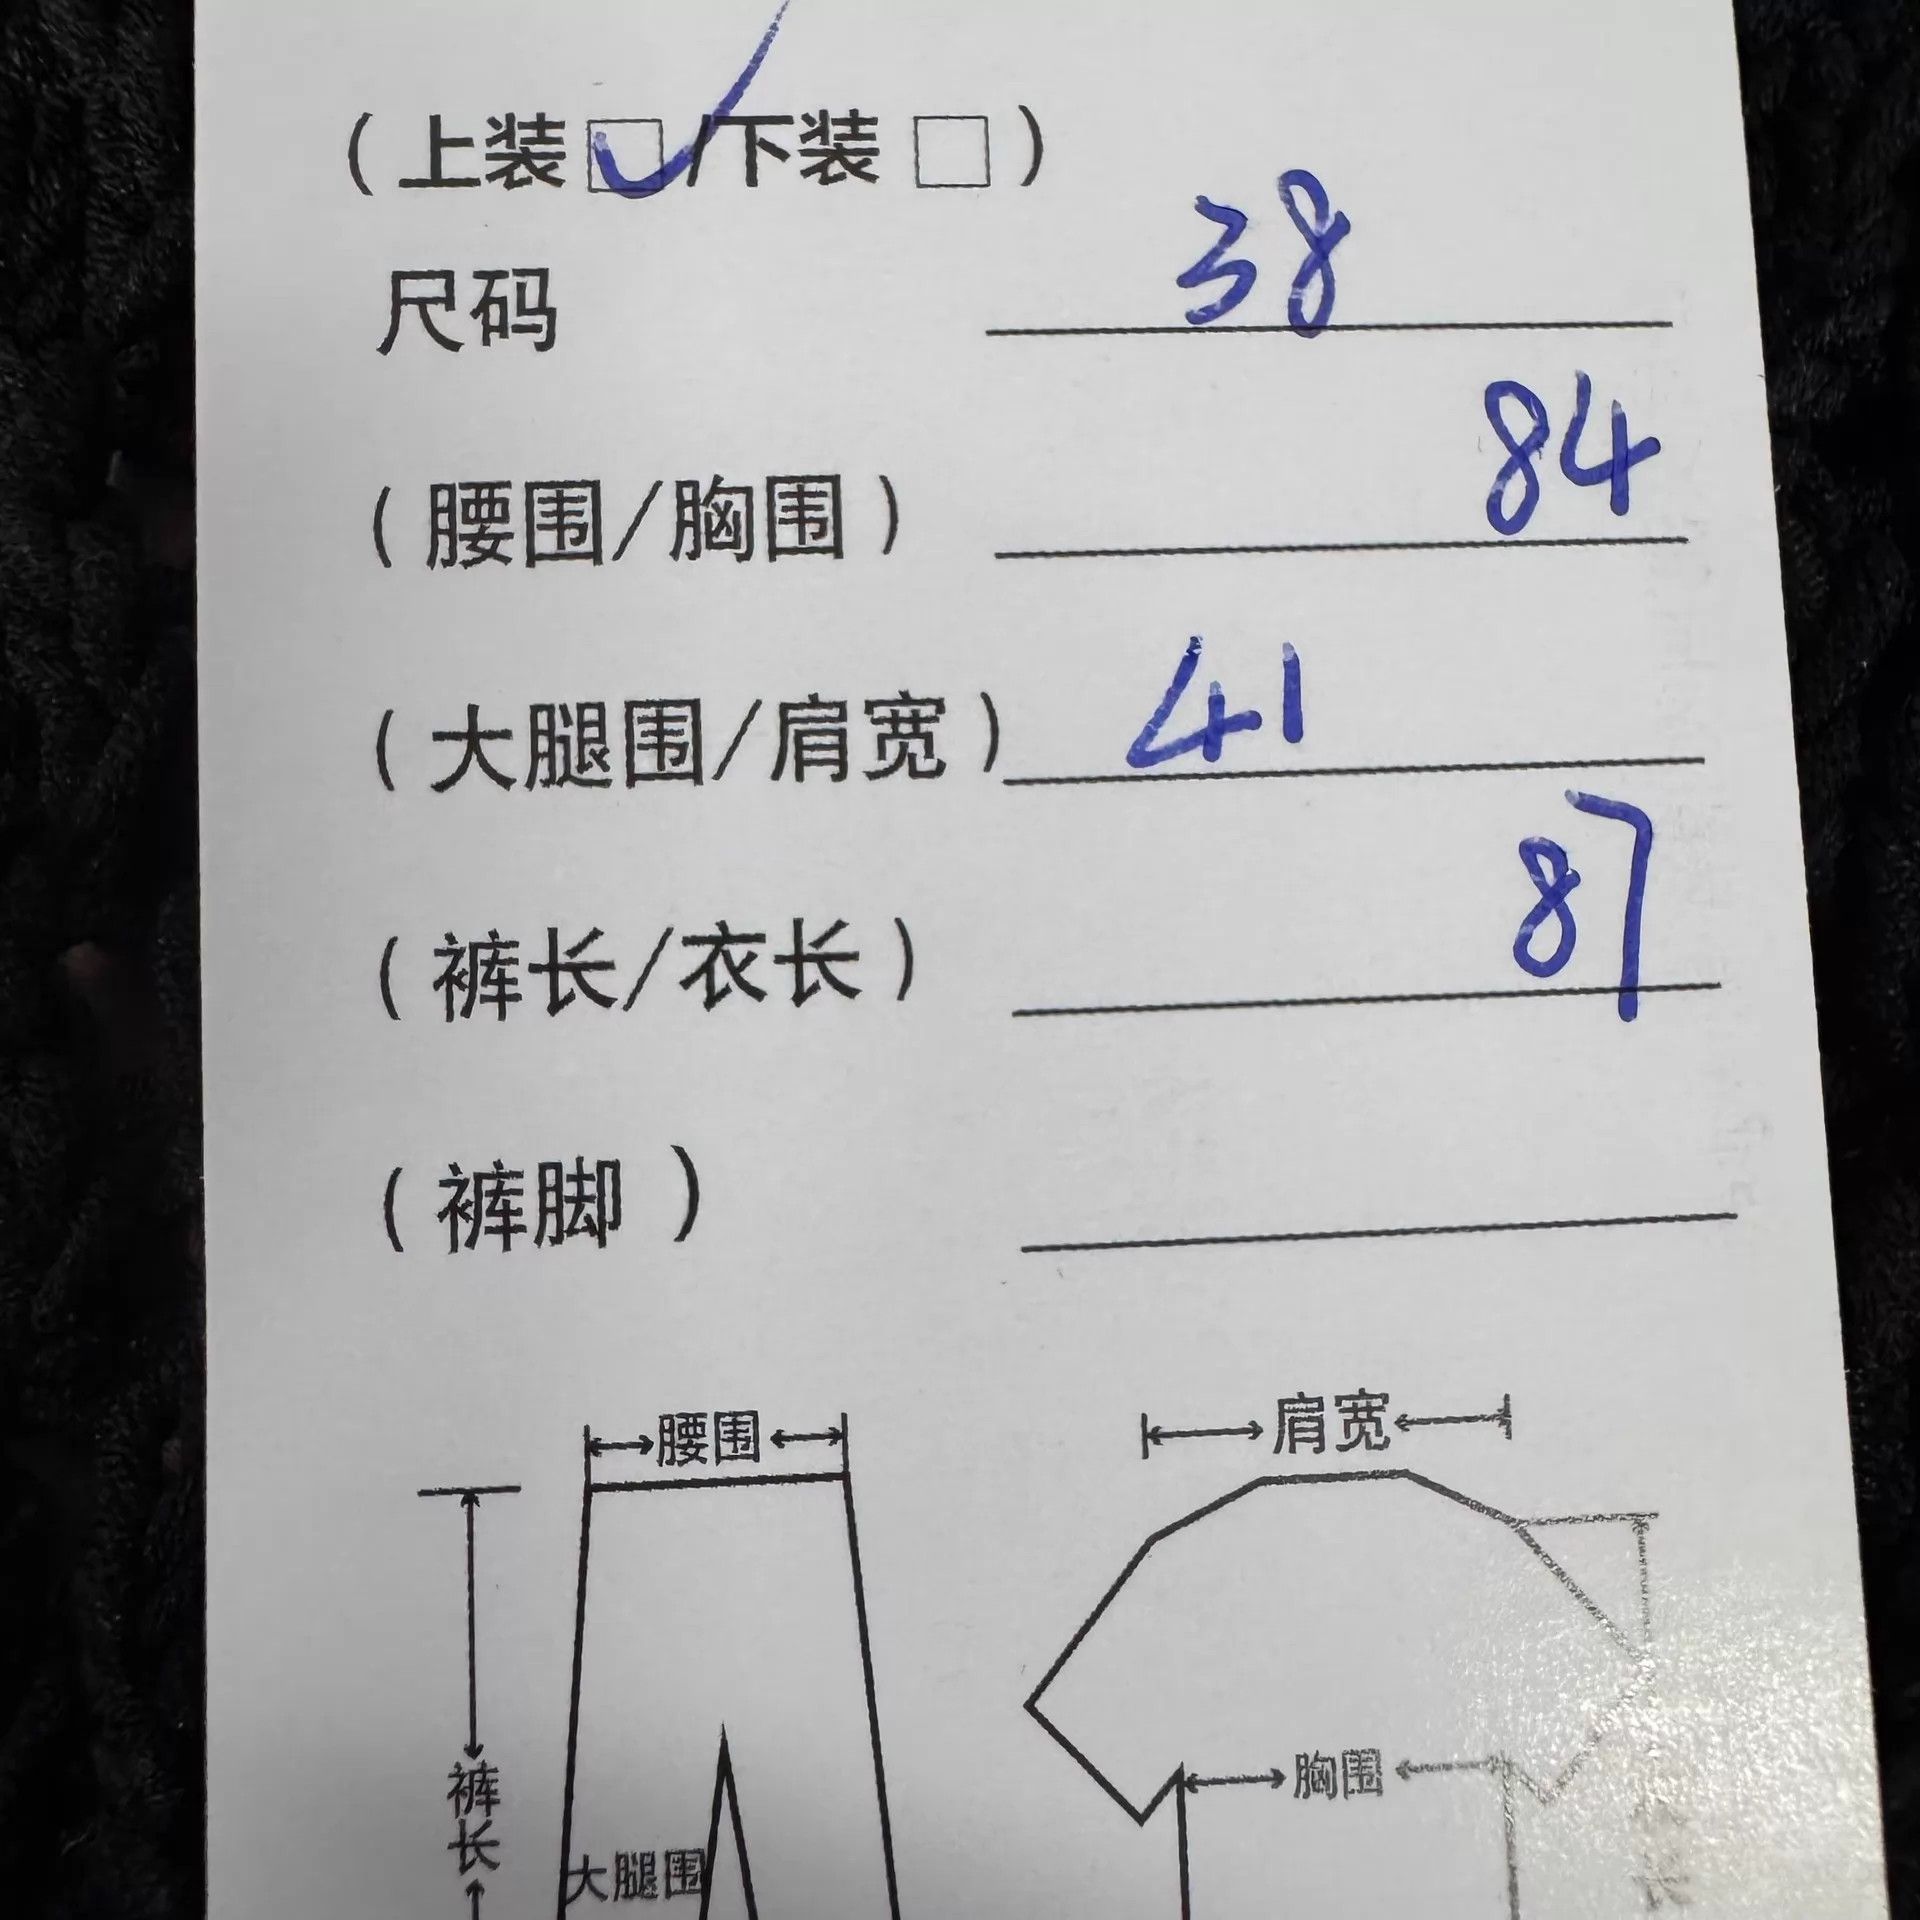 (上装☑/下装□)
尺码 38
(腰围/胸围) 84
(大腿围/肩宽) 41
(裤长/衣长) 87
(裤脚 )
腰围
肩宽
胸围
裤长
大腿围